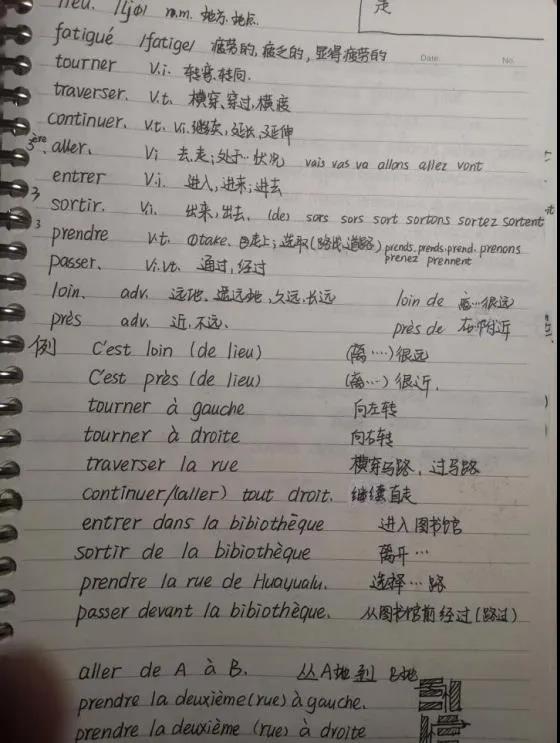 lieu. /ljø/ n.m. 地方, 地点.
走
fatigué /fatige/ 疲劳的, 疲乏的, 显得疲劳的
Date. No.
tourner v.i. 转弯, 转向.
traverser. v.t. 横穿, 穿过, 横渡
continuer. v.t. v.i. 继续, 延长, 延伸
3ère. aller. vi 去, 走; 处于…状况 vais vas va allons allez vont
entrer v.i. 进入, 进来, 进去
3 sortir. vi. 出来, 出去. (de) sors sors sort sortons sortez sortent
3 prendre v.t. ①take. ②走上; 选取(路线, 道路) prends. prends. prend. prenons
prenez prennent
passer. v.i. vt. 通过, 经过
loin. adv. 远地, 遥远地, 久远, 长远 loin de 离…很远
près adv. 近, 不远. près de 在…附近
例 C'est loin (de lieu) (离…) 很远
C'est près (de lieu) (离…) 很近.
tourner à gauche 向左转
tourner à droite 向右转
traverser la rue 横穿马路, 过马路
continuer/(aller) tout droit. 继续直走
entrer dans la bibiothèque 进入图书馆
sortir de la bibiothèque 离开…
prendre la rue de Huayualu. 选择…路
passer devant la bibiothèque. 从图书馆前经过(路过)
aller de A à B. 从A地到B地
prendre la deuxième (rue) à gauche.
prendre la deuxième (rue) à droite